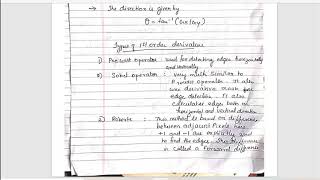 → The direction is given by
θ = tan⁻¹ (Gx/Gy)
Types of 1st order derivatives
1) Prewitt operator used for detecting edges horizontally
and vertically
2) Sobel operator : Very much similar to
Prewitt operator. It also
use derivative mask for
edge detection. It also
calculates edges both in
horizontal and vertical direction
3) Roberts : This method is based on difference
between adjacent pixels here
+1 and -1 are explicitly used
to find the edges. This difference
is called a forward difference